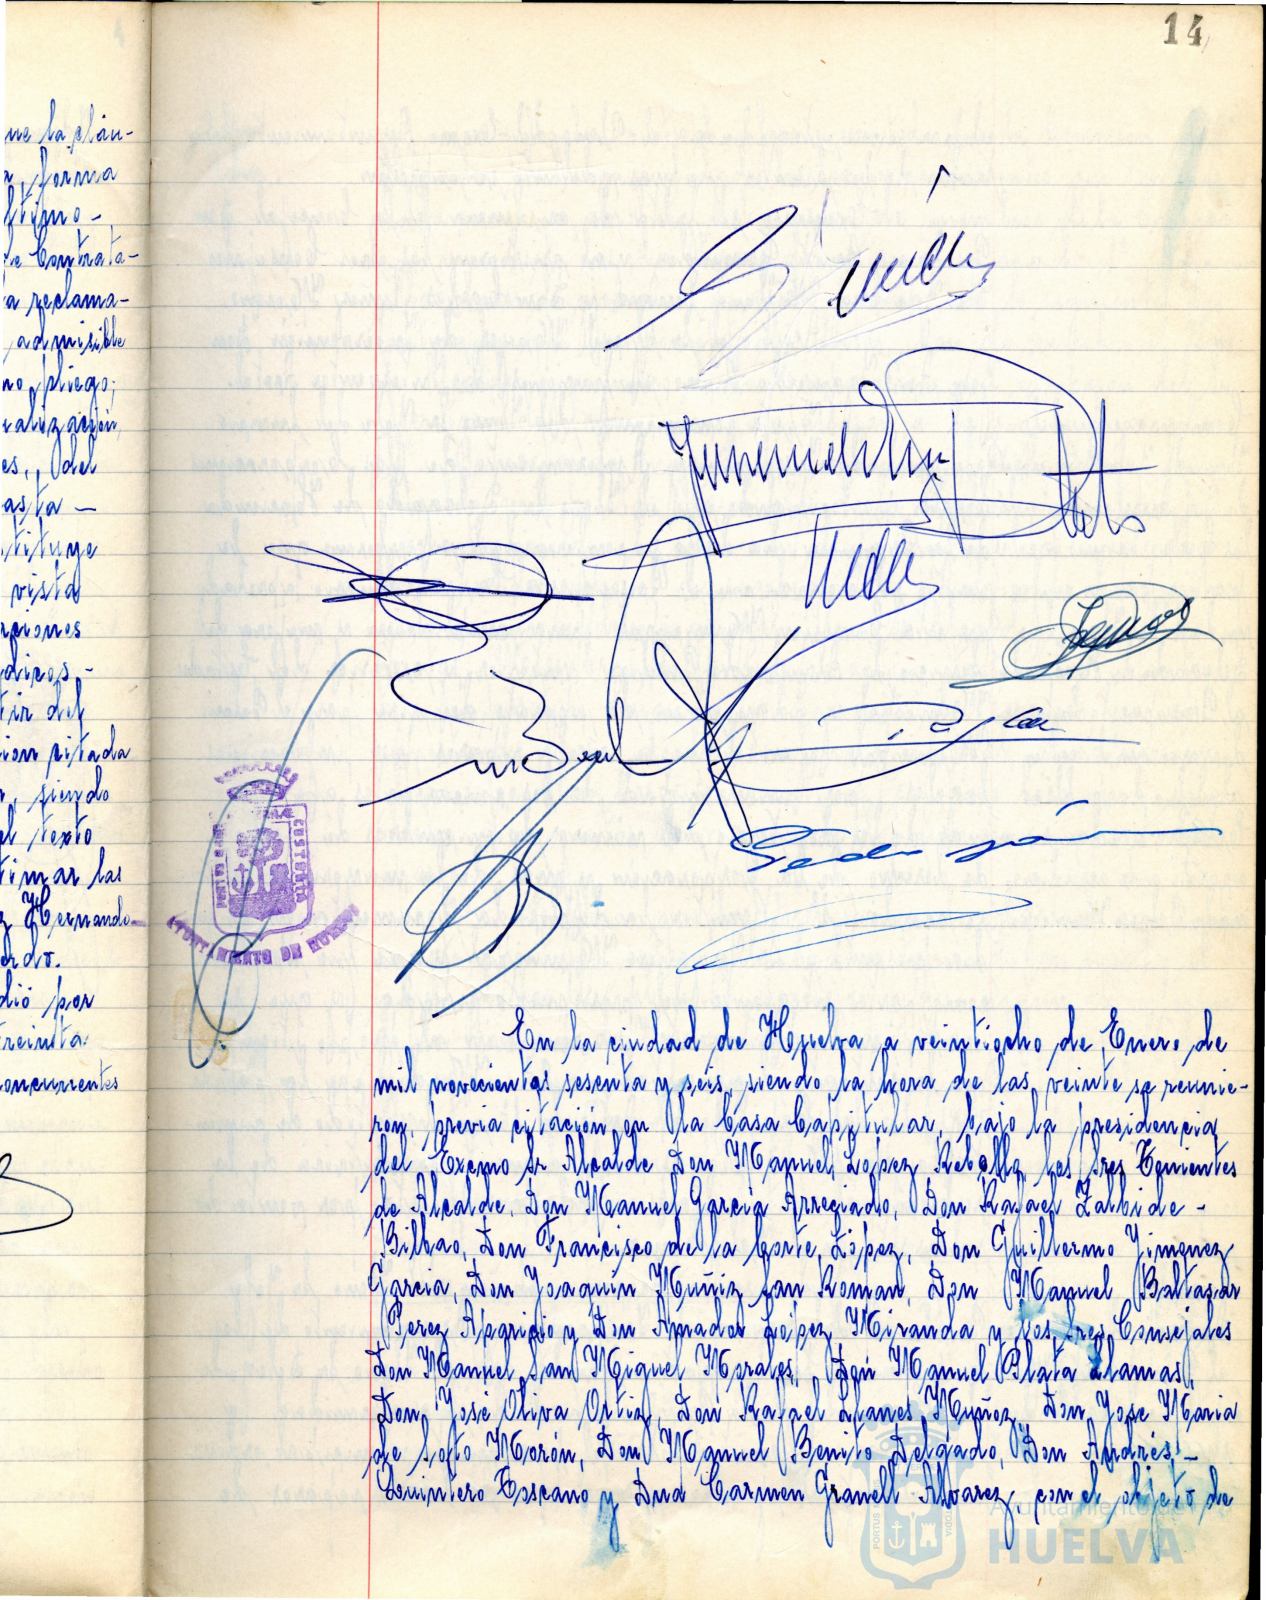 14
ue la cláu-
forma
ltimo-
de Contrata-
a reclama-
admisible
no pliego;
ralización
es, del
asta -
tituye
vista
rciones
dicos-
tir del
ion citada
r, siendo
el texto
timar las
z Hernando-
erdo.
dió por
treinta
concurrentes
AYUNTAMIENTO DE HUELVA
En la ciudad de Huelva a veintiocho de Enero de
mil novecientos sesenta y seis, siendo la hora de las veinte se reunie-
ron, previa citación, en la Casa Capitular, bajo la presidencia
del Excmo Sr Alcalde Don Manuel López Rebollo, los Sres Tenientes
de Alcalde, Don Manuel García Arreciado, Don Rafael Zalvide-
Bilbao, Don Francisco de la Corte López, Don Guillermo Jimenez
Garcia, Don Joaquín Muñiz San Roman, Don Manuel Baltasar
Perez Aparicio y Don Amador López Miranda y los Sres Consejales
Don Manuel San Miguel Morales, Don Manuel Plata Llamas,
Don José Oliva Ortiz, Don Rafael Llanes Muñoz, Don Jose Maria
de Soto Morón, Don Manuel Benito Delgado, Don Andrés-
Quintero Toscano y Dña Carmen Granell Alvarez, con el objeto de
Ayuntamiento de
HUELVA